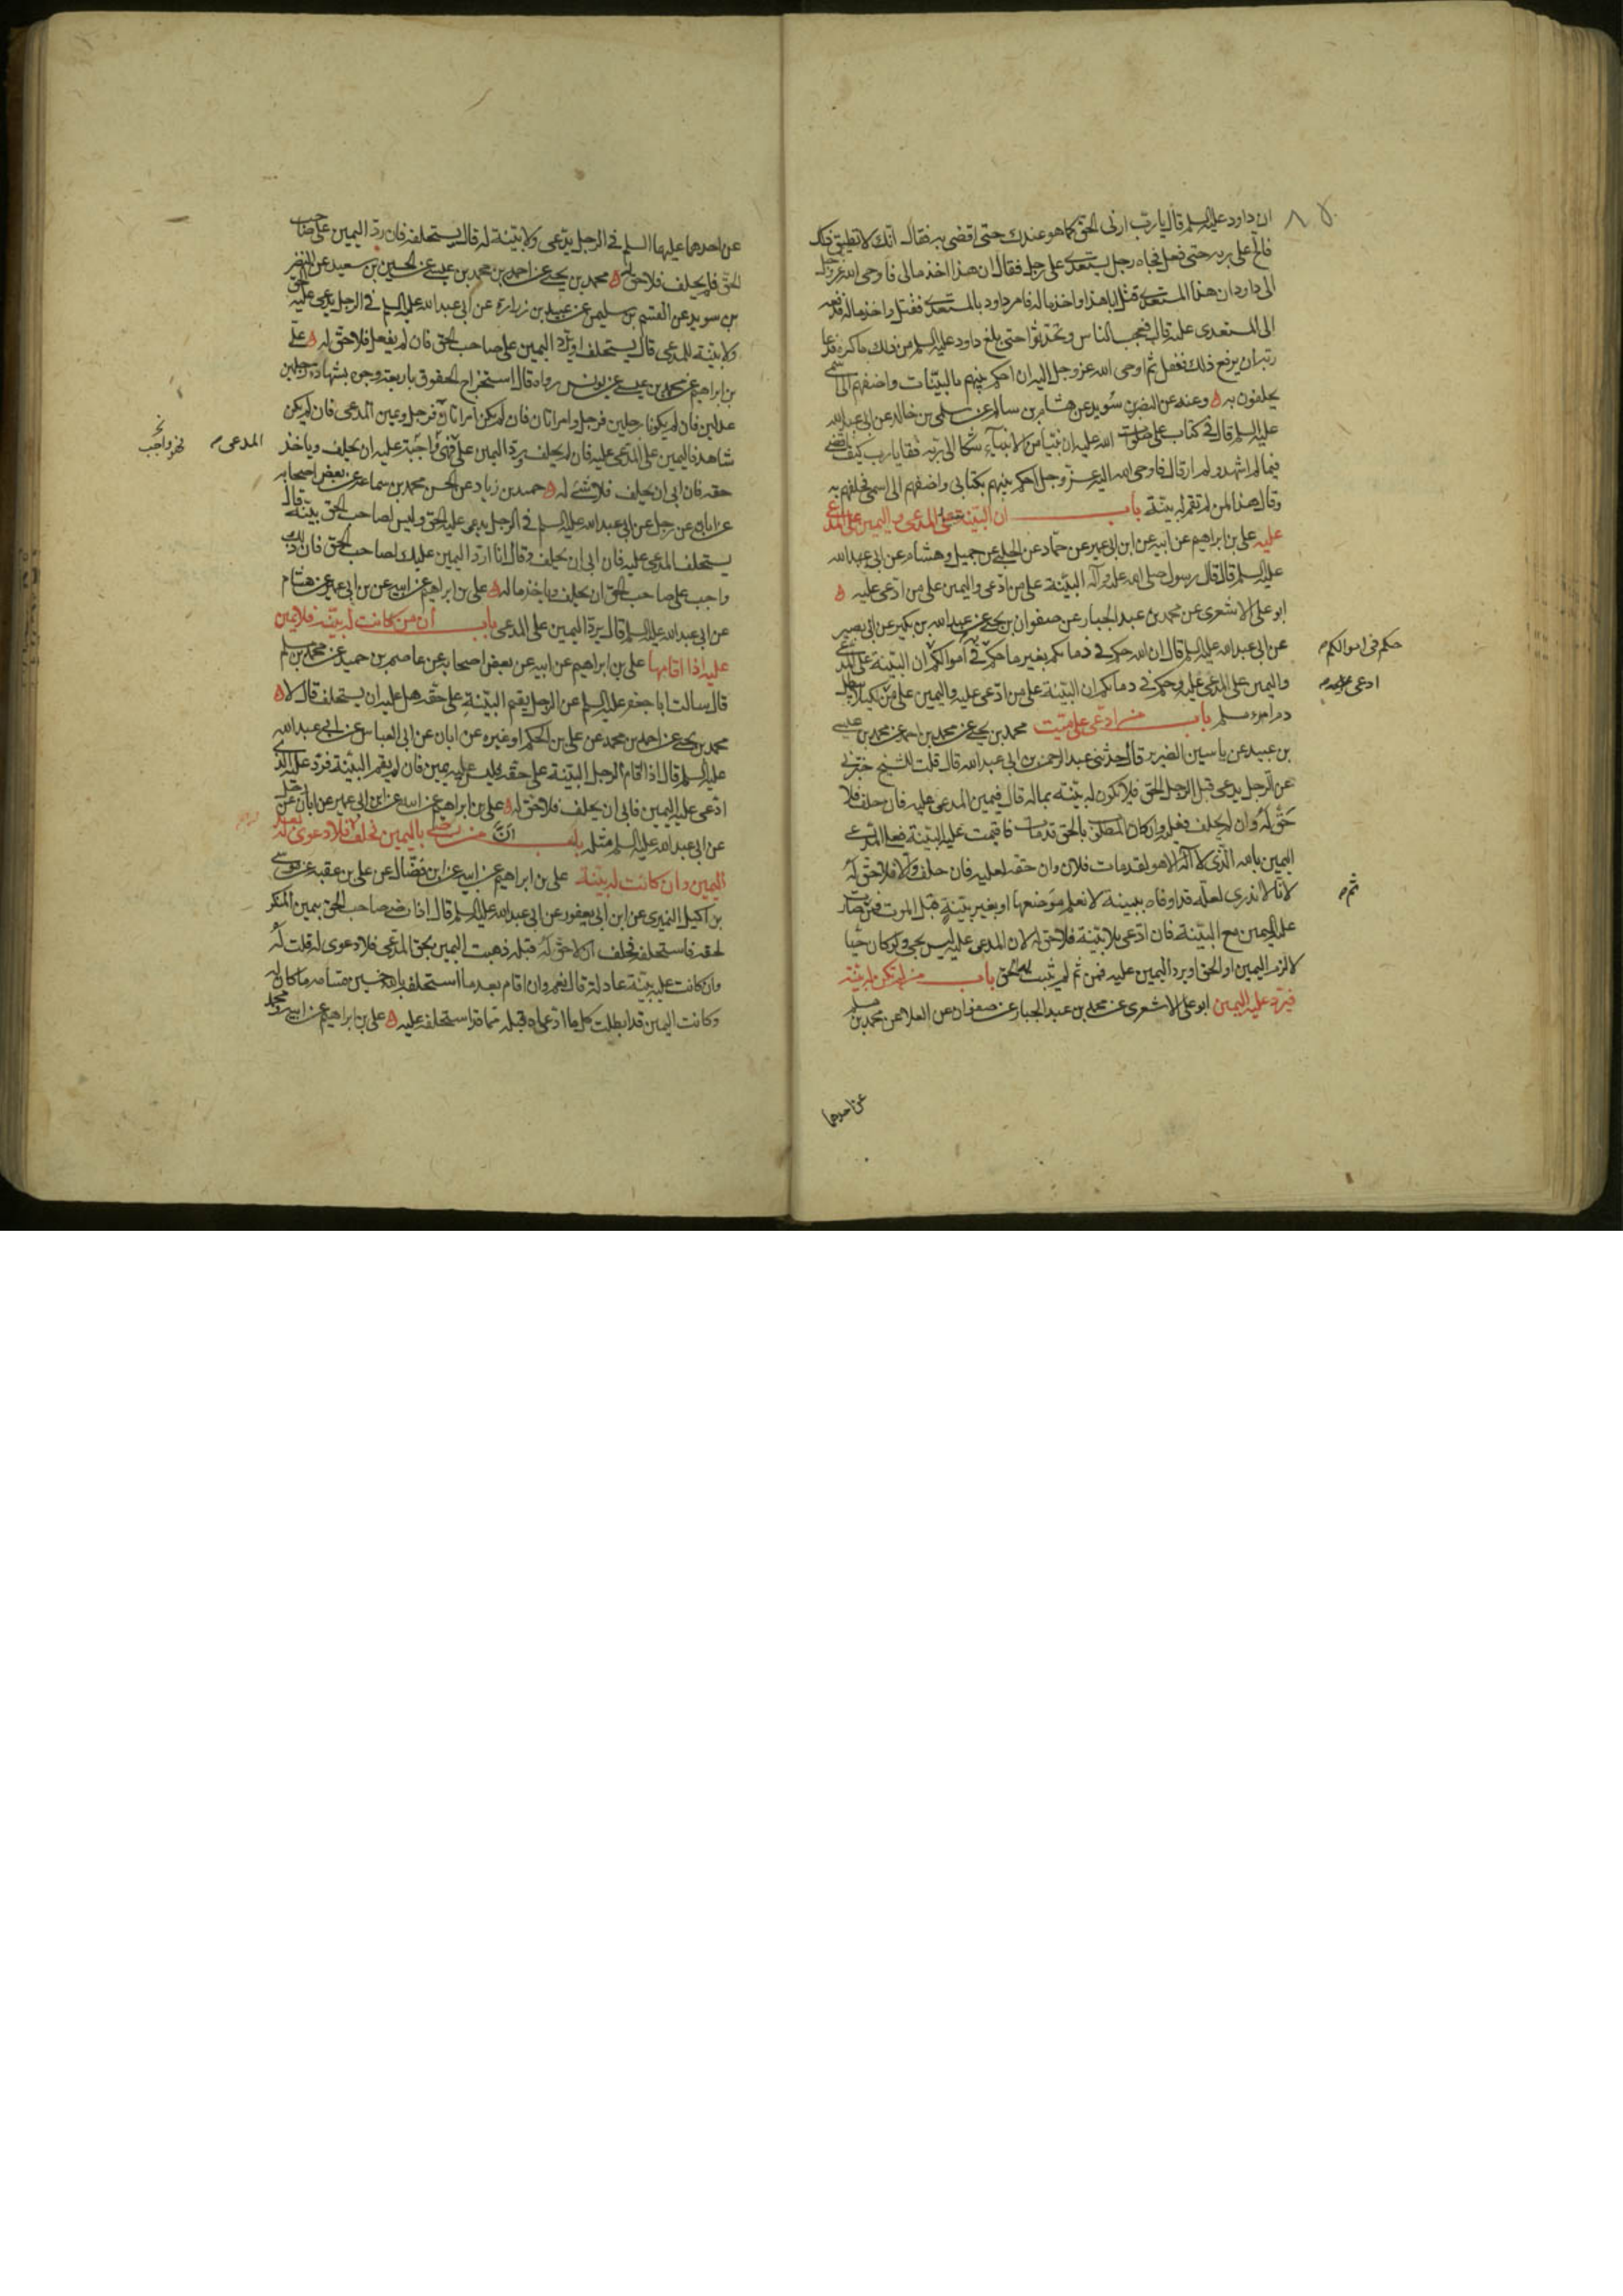 ان داود عليه السلم قال يا رب ارنى الحق كما هو عندك حتى اقضى به فقال انك لا تطيق ذلك
فالح على ربه حتى فعل فجاه رجل يستعدى على رجل فقال ان هذا اخذ مالى فاوحى الله عز وجل
الى داود ان هذا المستعدى قتل ابا هذا واخذ ماله فامر داود بالمستعدى فقتل واخذ ماله فدفعه
الى المستعدى عليه قال فعجب الناس وتحدثوا حتى بلغ داود عليه السلم من ذلك ما كره فدعا
ربه ان يرفع ذلك ففعل ثم اوحى الله عز وجل اليه ان احكم بينهم بالبينات واضفهم الى اسمى
يحلفون به وعنه عن النضر بن سويد عن هشام بن سالم عن سليمن بن خالد عن ابى عبد الله
عليه السلم قال فى كتاب على صلوات الله عليه ان نبيا من الانبياء شكا الى ربه فقال يا رب كيف اقضى
فيما لم اشهد ولم ار قال فاوحى الله اليه عز وجل احكم بينهم بكتابى واضفهم الى اسمى تحلفهم به
وقال هذا لمن لم تقم له بينة باب ان البينة على المدعى و اليمين على المدعى
عليه على بن ابراهيم عن ابيه عن ابن ابى عمير عن حماد عن الحلبى عن جميل وهشام عن ابى عبد الله
عليه السلم قال قال رسول الله صلى الله عليه وآله البينة على من ادعى واليمين على من ادعى عليه
ابو على الاشعرى عن محمد بن عبد الجبار عن صفوان بن يحيى عن عبد الله بن بكير عن ابى بصير
عن ابى عبد الله عليه السلم قال ان الله حكم فى دمائكم بغير ما حكم به فى اموالكم ان البينة على المدعى
حكم فى اموالكم
واليمين على المدعى عليه وحكم فى دمائكم ان البينة على من ادعى عليه واليمين على من لكيلا يبطل
ادعى
دم امرء مسلم باب من ادعى على ميت محمد بن يحيى عن محمد بن احمد عن محمد بن عيسى
بن عبيد عن ياسين الضرير قال حدثنى عبد الرحمن بن ابى عبد الله قال قلت للشيخ خبرنى
عن الرجل يدعى قبل الرجل الحق فلا يكون له بينة بماله قال فيمين المدعى عليه فان حلف فلا
حق له وان لم يحلف فعليه وان كان المطلوب بالحق قد مات فاقيمت عليه البينة فعلى المدعى
اليمين بالله الذى لا اله الا هو لقد مات فلان وان حقه لعليه فان حلف والا فلا حق له
لانا لا ندرى لعله قد اوفاه ببينة لا نعلم موضعها او بغير بينة قبل الموت فمن صارت
ثم
عليه اليمين مع البينة فان ادعى بلا بينة فلا حق له لان المدعى عليه ليس بحى ولو كان حيا
لالزم اليمين او الحق او يرد اليمين عليه فمن ثم لم يثبت له الحق باب من لم تكن له بينة
فيرد عليه اليمين ابو على الاشعرى عن محمد بن عبد الجبار عن صفوان عن العلا عن محمد بن مسلم
عن احدهما
عن احدهما عليهما السلم فى الرجل يدعى ولا بينة له قال يستحلفه فان رد اليمين على صاحب
الحق فلم يحلف فلا حق له محمد بن يحيى عن احمد بن محمد بن عيسى عن الحسين بن سعيد عن النضر
بن سويد عن القسم بن سليمن عن عبيد بن زرارة عن ابى عبد الله عليه السلم فى الرجل يدعى عليه الحق
ولا بينة للمدعى قال يستحلف او يرد اليمين على صاحب الحق فان لم يفعل فلا حق له على
بن ابراهيم عن محمد بن عيسى عن يونس رواه قال استخراج الحقوق باربعة وجوه بشهادة رجلين
عدلين فان لم يكونا رجلين فرجل وامراتان فان لم يكن امراتان فرجل ويمين المدعى فان لم يكن
شاهد فاليمين على المدعى عليه فان لم يحلف ورد اليمين على فهى واجبة عليه ان يحلف وياخذ
المدعى
حقه فان ابى ان يحلف فلا شى له حميد بن زياد عن الحسن بن محمد بن سماعة عن بعض اصحابه
عن ابان عن رجل عن ابى عبد الله عليه السلم فى الرجل يدعى عليه الحق وليس لصاحب الحق بينة قال
يستحلف المدعى عليه فان ابى ان يحلف وقال انا ارد اليمين عليك لصاحب الحق فان ذلك
واجب على صاحب الحق ان يحلف وياخذ ماله على بن ابراهيم عن ابيه عن بن ابى عمير عن هشام
عن ابى عبد الله عليه السلم قال يرد اليمين على المدعى باب ان من كانت له بينة فلا يمين
عليه اذا اقامها على بن ابراهيم عن ابيه عن بعض اصحابه عن عاصم بن حميد عن محمد بن مسلم
قال سالت ابا جعفر عليه السلم عن الرجل يقيم البينة على حقه هل عليه ان يستحلف قال لا
محمد بن يحيى عن احمد بن محمد عن على بن الحكم او غيره عن ابان عن ابى العباس عن ابى عبد الله
عليه السلم قال اذا اقام الرجل البينة على حقه فليس عليه يمين فان لم يقم البينة فرد عليه الذى
ادعى عليه اليمين فابى ان يحلف فلا حق له على بن ابراهيم عن ابيه عن ابن ابى عمير عن ابان عن رجل
عن ابى عبد الله عليه السلم مثله باب ان من رضى باليمين فحلف له فلا دعوى له بعد
اليمين وان كانت له بينة على بن ابراهيم عن ابيه عن ابن فضال عن على بن عقبة عن موسى
بن اكيل النميرى عن ابن ابى يعفور عن ابى عبد الله عليه السلم قال اذا رضى صاحب الحق بيمين المنكر
لحقه فاستحلفه فحلف ان لا حق له قبله ذهبت اليمين بحق المدعى فلا دعوى له قلت له
وان كانت عليه بينة عادلة قال نعم وان اقام بعد ما استحلفه بالله خمسين قسامة ما كان له
وكانت اليمين قد ابطلت كل ما ادعاه قبله مما قد استحلفه عليه على بن ابراهيم عن ابيه ومحمد